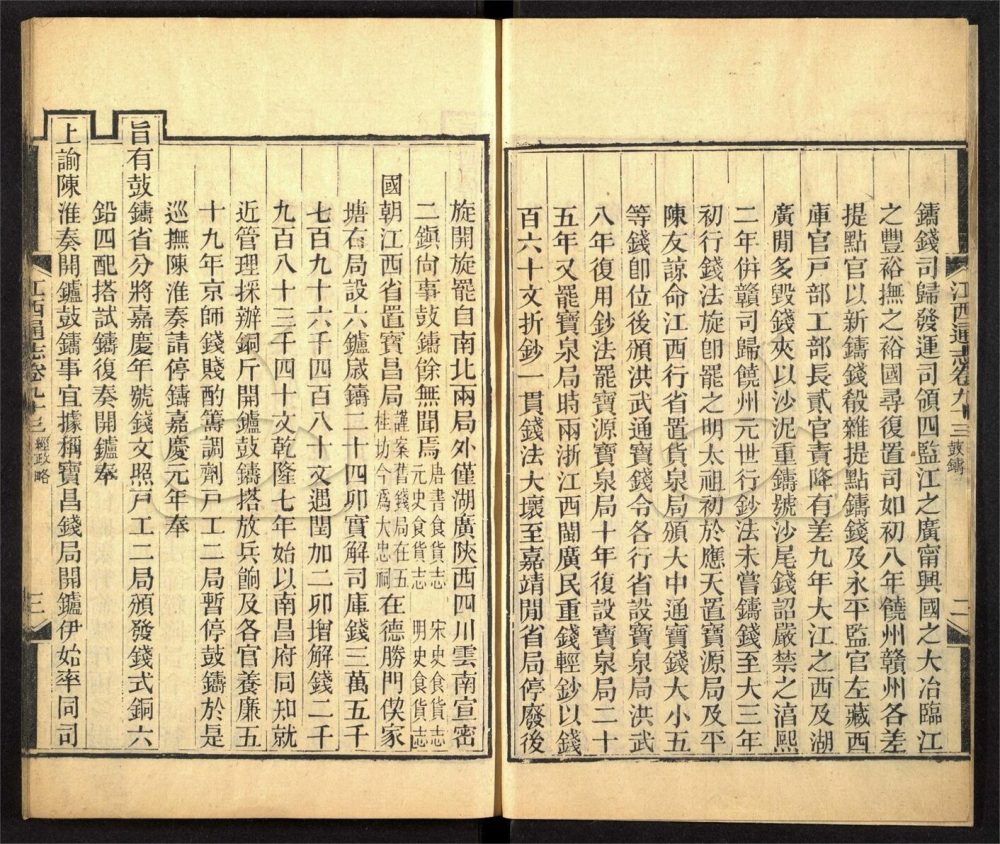 鑄錢司歸發運司領四監江之廣甯興國之大冶臨江
之豐裕撫之裕國尋復置司如初八年饒州贛州各差
提點官以新鑄錢殽雜提點鑄錢及永平監官左藏西
庫官戶部工部長貳官責降有差九年大江之西及湖
廣閒多毀錢夾以沙泥重鑄號沙尾錢詔嚴禁之淳熙
二年併贛司歸饒州元世行鈔法未嘗鑄錢至大三年
初行錢法旋卽罷之明太祖初於應天置寶源局及平
陳友諒命江西行省置貨泉局頒大中通寶錢大小五
等錢卽位後頒洪武通寶錢令各行省設寶泉局洪武
八年復用鈔法罷寶源寶泉局十年復設寶泉局二十
五年又罷寶泉局時兩浙江西閩廣民重錢輕鈔以錢
百六十文折鈔一貫錢法大壞至嘉靖閒省局停廢後
江西通志卷九十三 鼓鑄 二
旋開旋罷自南北兩局外僅湖廣陝西四川雲南宣密
二鎭尙事鼓鑄餘無聞焉 唐書食貨志 宋史食貨志 元史食貨志 明史食貨志
國朝江西省置寶昌局 謹案舊錢局在五桂坊今爲大忠祠 在德勝門傒家
塘右局設六鑪歲鑄二十四卯實解司庫錢三萬五千
七百九十六千四百八十文遇閏加二卯增解錢二千
九百八十三千四十文乾隆七年始以南昌府同知就
近管理採辦銅斤開鑪鼓鑄搭放兵餉及各官養廉五
十九年京師錢賤酌籌調劑戶工二局暫停鼓鑄於是
巡撫陳淮奏請停鑄嘉慶元年奉
旨有鼓鑄省分將嘉慶年號錢文照戶工二局頒發錢式銅六
鉛四配搭試鑄復奏開鑪奉
上諭陳淮奏開鑪鼓鑄事宜據稱寶昌錢局開鑪伊始率同司
江西通志卷九十三 經政略 三